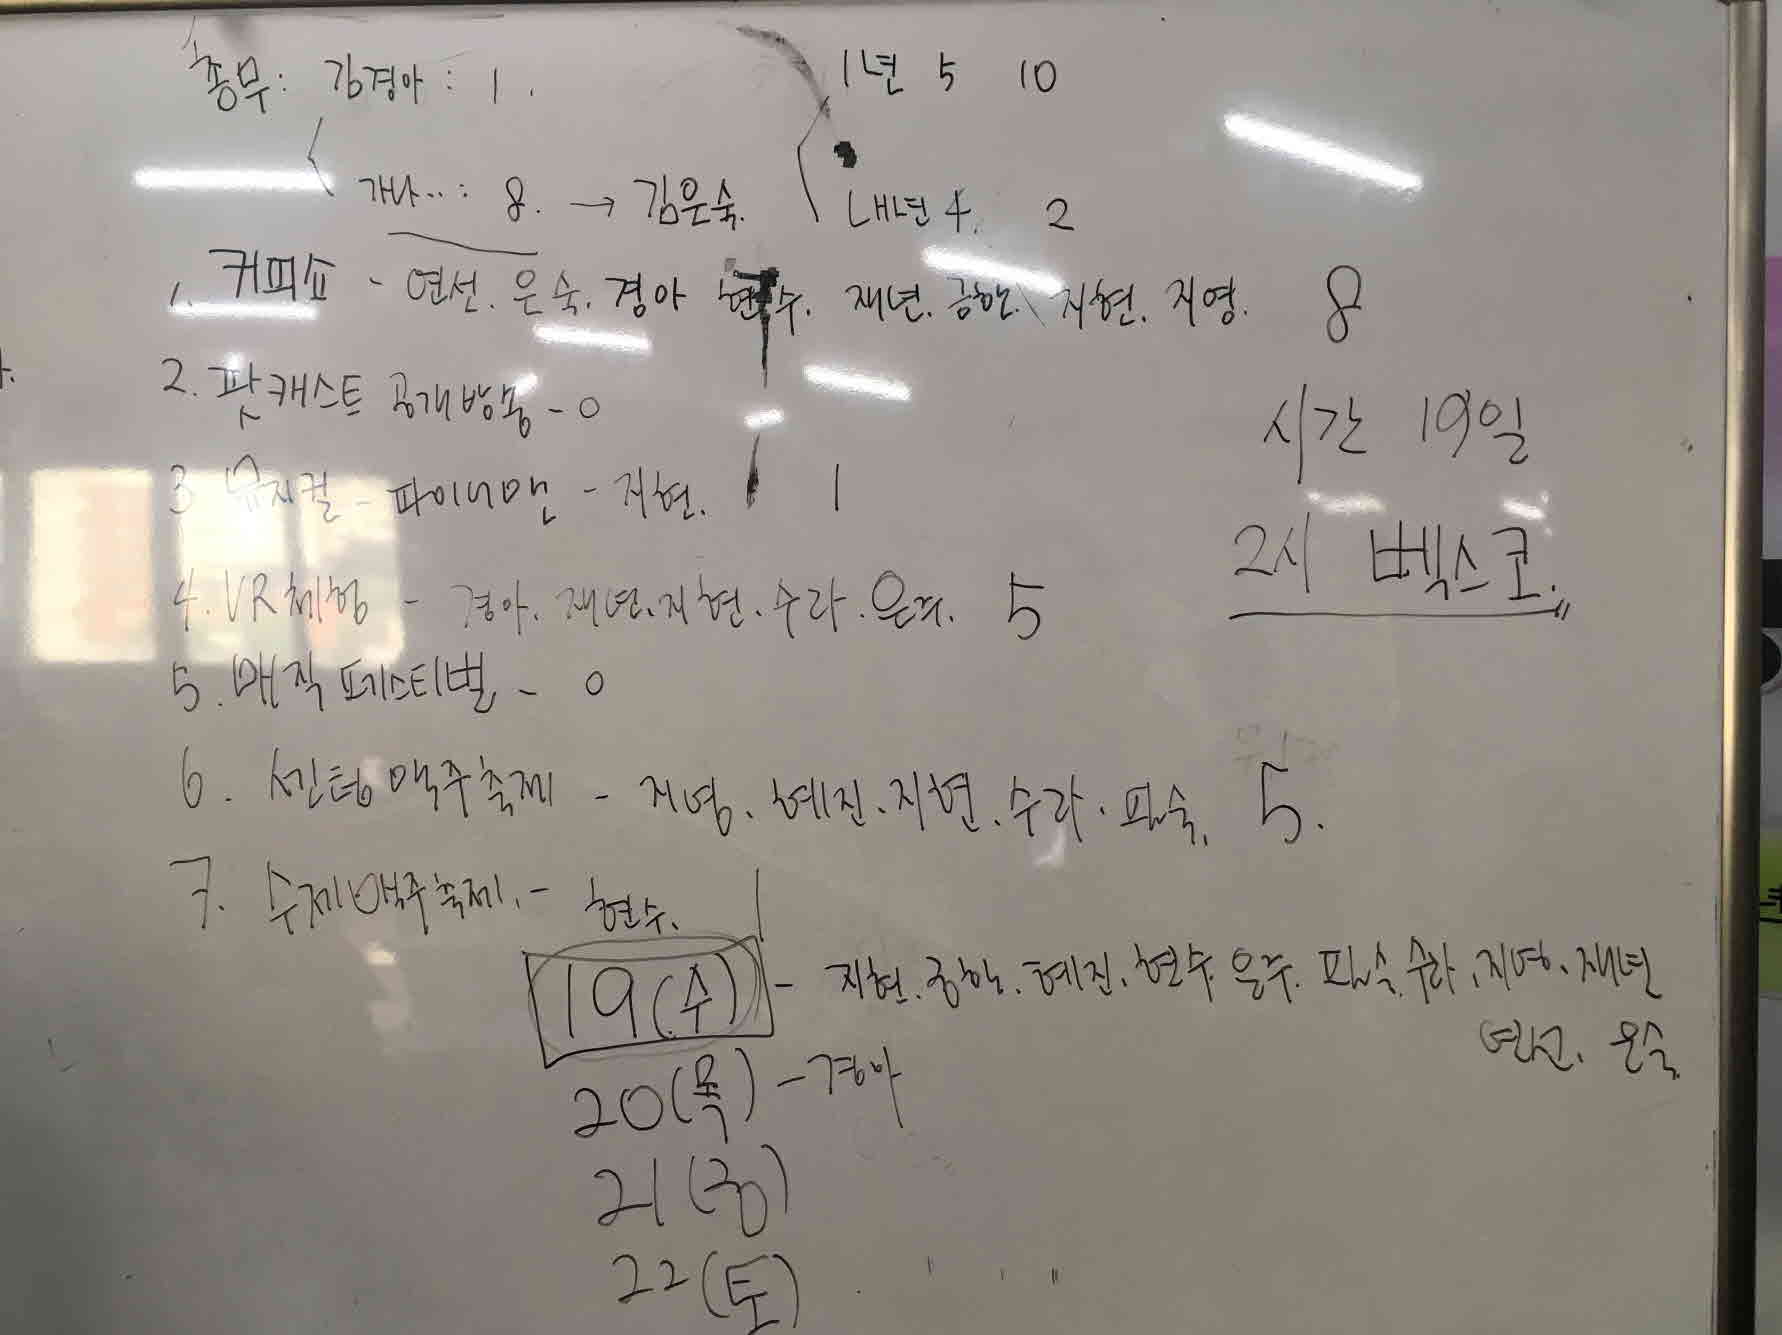 총무: 김경아: 1.
1년 5 10
가나...: 8. → 김은숙.
내년 4. 2
1. 커피쇼 - 연선. 은숙. 경아 현수. 재년. 공학. 지현. 지영. 8
2. 팟캐스트 공개방송 - 0
시간 19일
3 뮤지컬 - 파이니맨 - 지현. 1
2시 벡스코.
4. VR체험 - 경아. 재년. 지현. 수라. 은주. 5
5. 매직페스티벌 - 0
6. 센텀맥주축제 - 지영. 혜진. 지현. 수라. 필숙. 5.
7. 수제맥주축제. - 현수. 1
19(수) - 지현. 공학. 혜진. 현수. 은주. 필숙. 수라. 지영. 재년
연선. 은숙.
20(목) - 경아
21(금)
22(토)